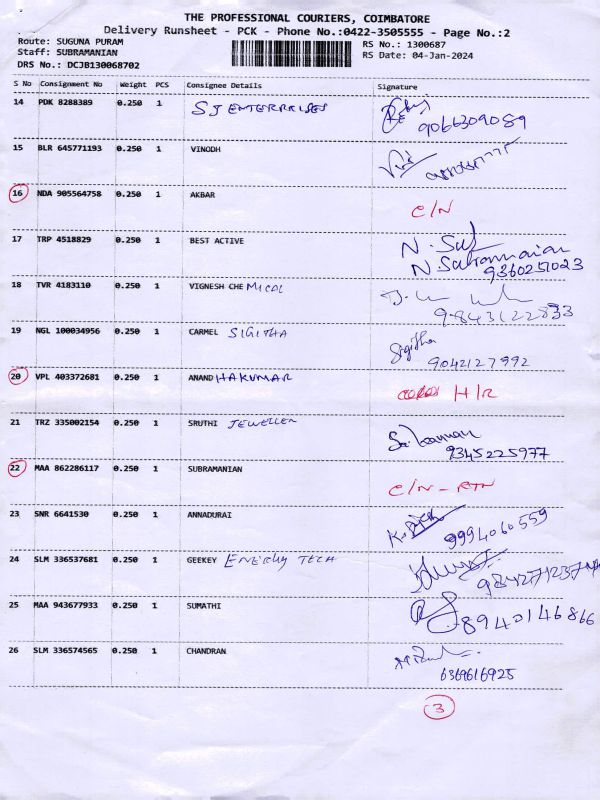 THE PROFESSIONAL COURIERS, COIMBATORE
Delivery Runsheet - PCK - Phone No.:0422-3505555 - Page No.:2
Route: SUGUNA PURAM RS No.: 1300687
Staff: SUBRAMANIAN RS Date: 04-Jan-2024
DRS No.: DCJB130068702
S No Consignment No Weight PCS Consignee Details Signature
14 PDK 8288389 0.250 1 SJ ENTERPRISES 9066309089
15 BLR 645771193 0.250 1 VINODH
16 NDA 905564758 0.250 1 AKBAR C/N
17 TRP 4518829 0.250 1 BEST ACTIVE N. Sat
N Satannaian
9360257023
18 TVR 4183110 0.250 1 VIGNESH CHEMICAL 9843122833
19 NGL 100034956 0.250 1 CARMEL SIGITHA Sigitha
9042127992
20 VPL 403372681 0.250 1 ANANDHAKUMAR H/R
21 TRZ 335002154 0.250 1 SRUTHI JEWELLER
9345225977
22 MAA 862286117 0.250 1 SUBRAMANIAN C/N-RTN
23 SNR 6641530 0.250 1 ANNADURAI 9994060559
24 SLM 336537681 0.250 1 GEEKEY ENERGY TECH
25 MAA 943677933 0.250 1 SUMATHI 8940146866
26 SLM 336574565 0.250 1 CHANDRAN
6369616925
3